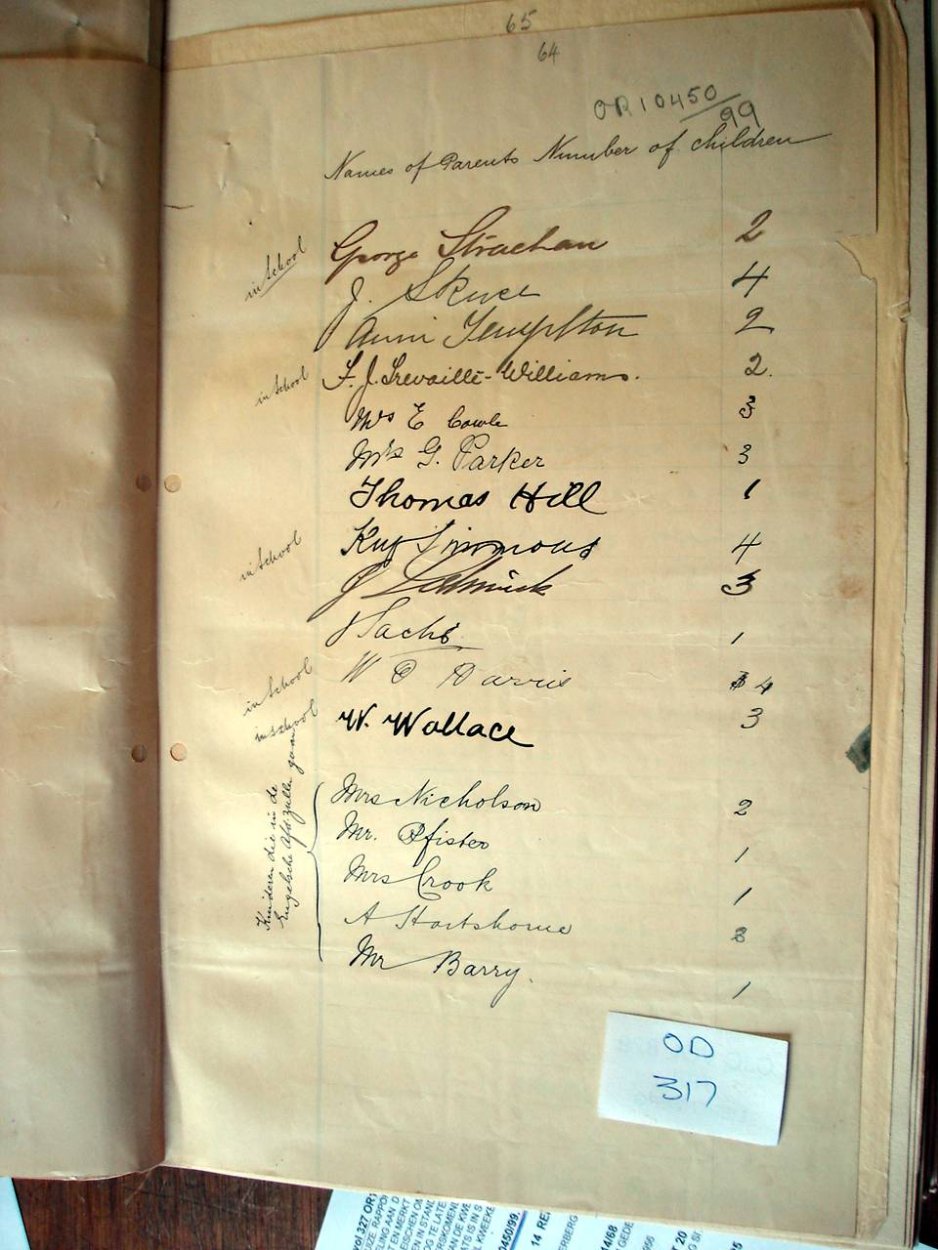 65
64
OR 10450/99
Names of Parents Number of children
in School George Strachan 2
J. Skuce 4
Templton 2
in School F. J. Trevaille-Williams. 2.
Mrs E Cowle 3
Mrs G. Parker 3
Thomas Hill 1
in School Simmons 4
J 3
J Sachs 1
in School W Darris 4
in school W. Wallace 3
Kinderen die in de
Engelsche Afd. zullen gaan
Mrs Nicholson 2
Mr. Pfister 1
Mrs Crook 1
A Hartshorne 3
Mr Barry. 1
OD
317
vol 327
14 RE
14/68